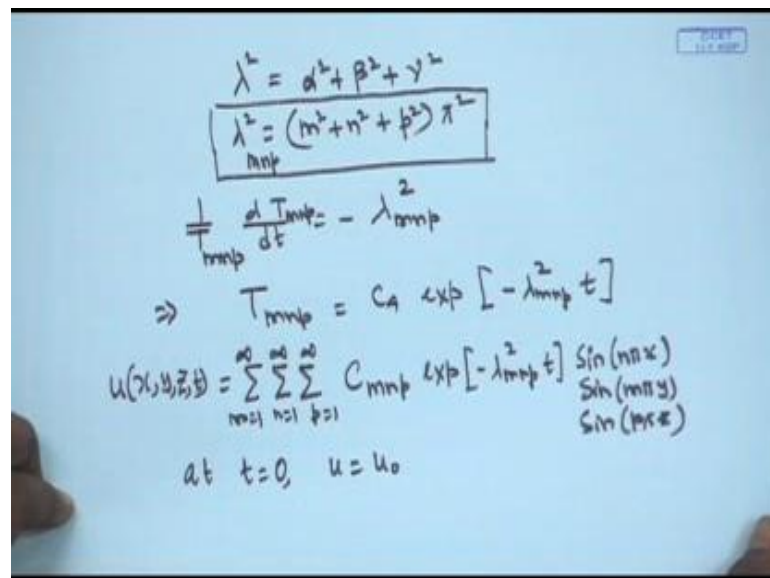 λ² = α² + β² + γ²
λ²mnp = (m² + n² + p²) π²
1/Tmnp dTmnp/dt = - λ²mnp
⇒ Tmnp = C4 exp [- λ²mnp t]
u(x,y,z,t) = ∞∑m=1 ∞∑n=1 ∞∑p=1 Cmnp exp[-λ²mnp t] Sin(nπx)
Sin(mπy)
Sin(pπz)
at t=0, u = u₀